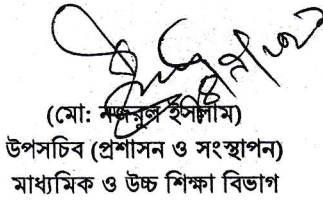 (মো: নজরুল ইসলাম)
উপসচিব (প্রশাসন ও সংস্থাপন)
মাধ্যমিক ও উচ্চ শিক্ষা বিভাগ